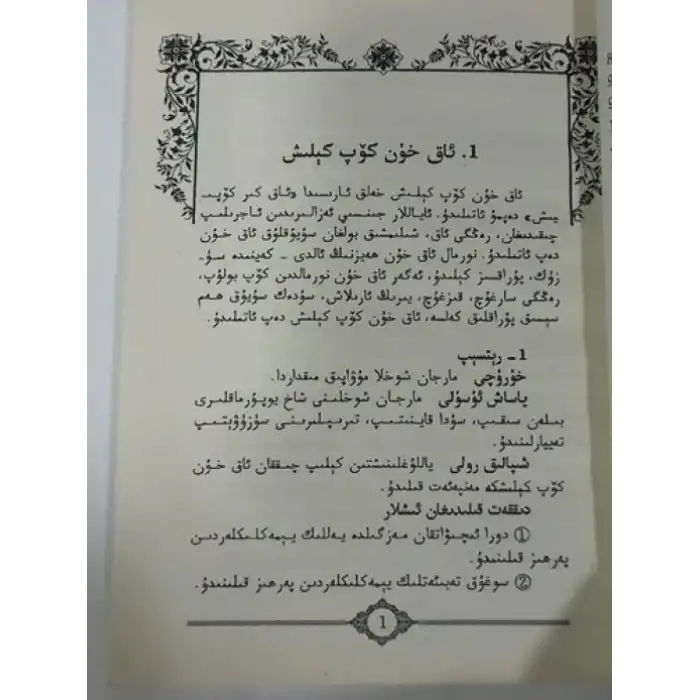 1. ئاق خۇن كۆپ كېلىش
ئاق خۇن كۆپ كېلىش خەلق ئارىسىدا «ئاق كىر كۆپىـ
يىش» دەپمۇ ئاتىلىدۇ. ئاياللار جىنسىي ئەزالىرىدىن ئاجرىلىپ
چىقىدىغان، رەڭگى ئاق، شىلىمشىق بولغان سۇيۇقلۇق ئاق خۇن
دەپ ئاتىلىدۇ. نورمال ئاق خۇن ھەيزنىڭ ئالدى ـ كەينىدە سۈـ
زۈك، پۇراقسىز كېلىدۇ، ئەگەر ئاق خۇن نورمالدىن كۆپ بولۇپ،
رەڭگى سارغۇچ، قىزغۇچ، يىرىڭ ئارىلاش، سۇدەك سۇيۇق ھەم
سېسىق پۇراقلىق كەلسە، ئاق خۇن كۆپ كېلىش دەپ ئاتىلىدۇ.
1 ـ رېتسېپ
خۇرۇچى مارجان شوخلا مۇۋاپىق مىقداردا.
ياساش ئۇسۇلى مارجان شوخلىنى شاخ يوپۇرماقلىرى
بىلەن سىقىپ، سۇدا قاينىتىپ، تىرىپلىرىنى سۈزۈۋېتىپ
تەييارلىنىدۇ.
شىپالىق رولى ياللۇغلىنىشتىن كېلىپ چىققان ئاق خۇن
كۆپ كېلىشكە مەنپەئەت قىلىدۇ.
دىققەت قىلىدىغان ئىشلار
① دورا ئىچىۋاتقان مەزگىلدە يەللىك يېمەكلىكلەردىن
پەرھىز قىلىنىدۇ.
② سوغۇق تەبىئەتلىك يېمەكلىكلەردىن پەرھىز قىلىنىدۇ.
1